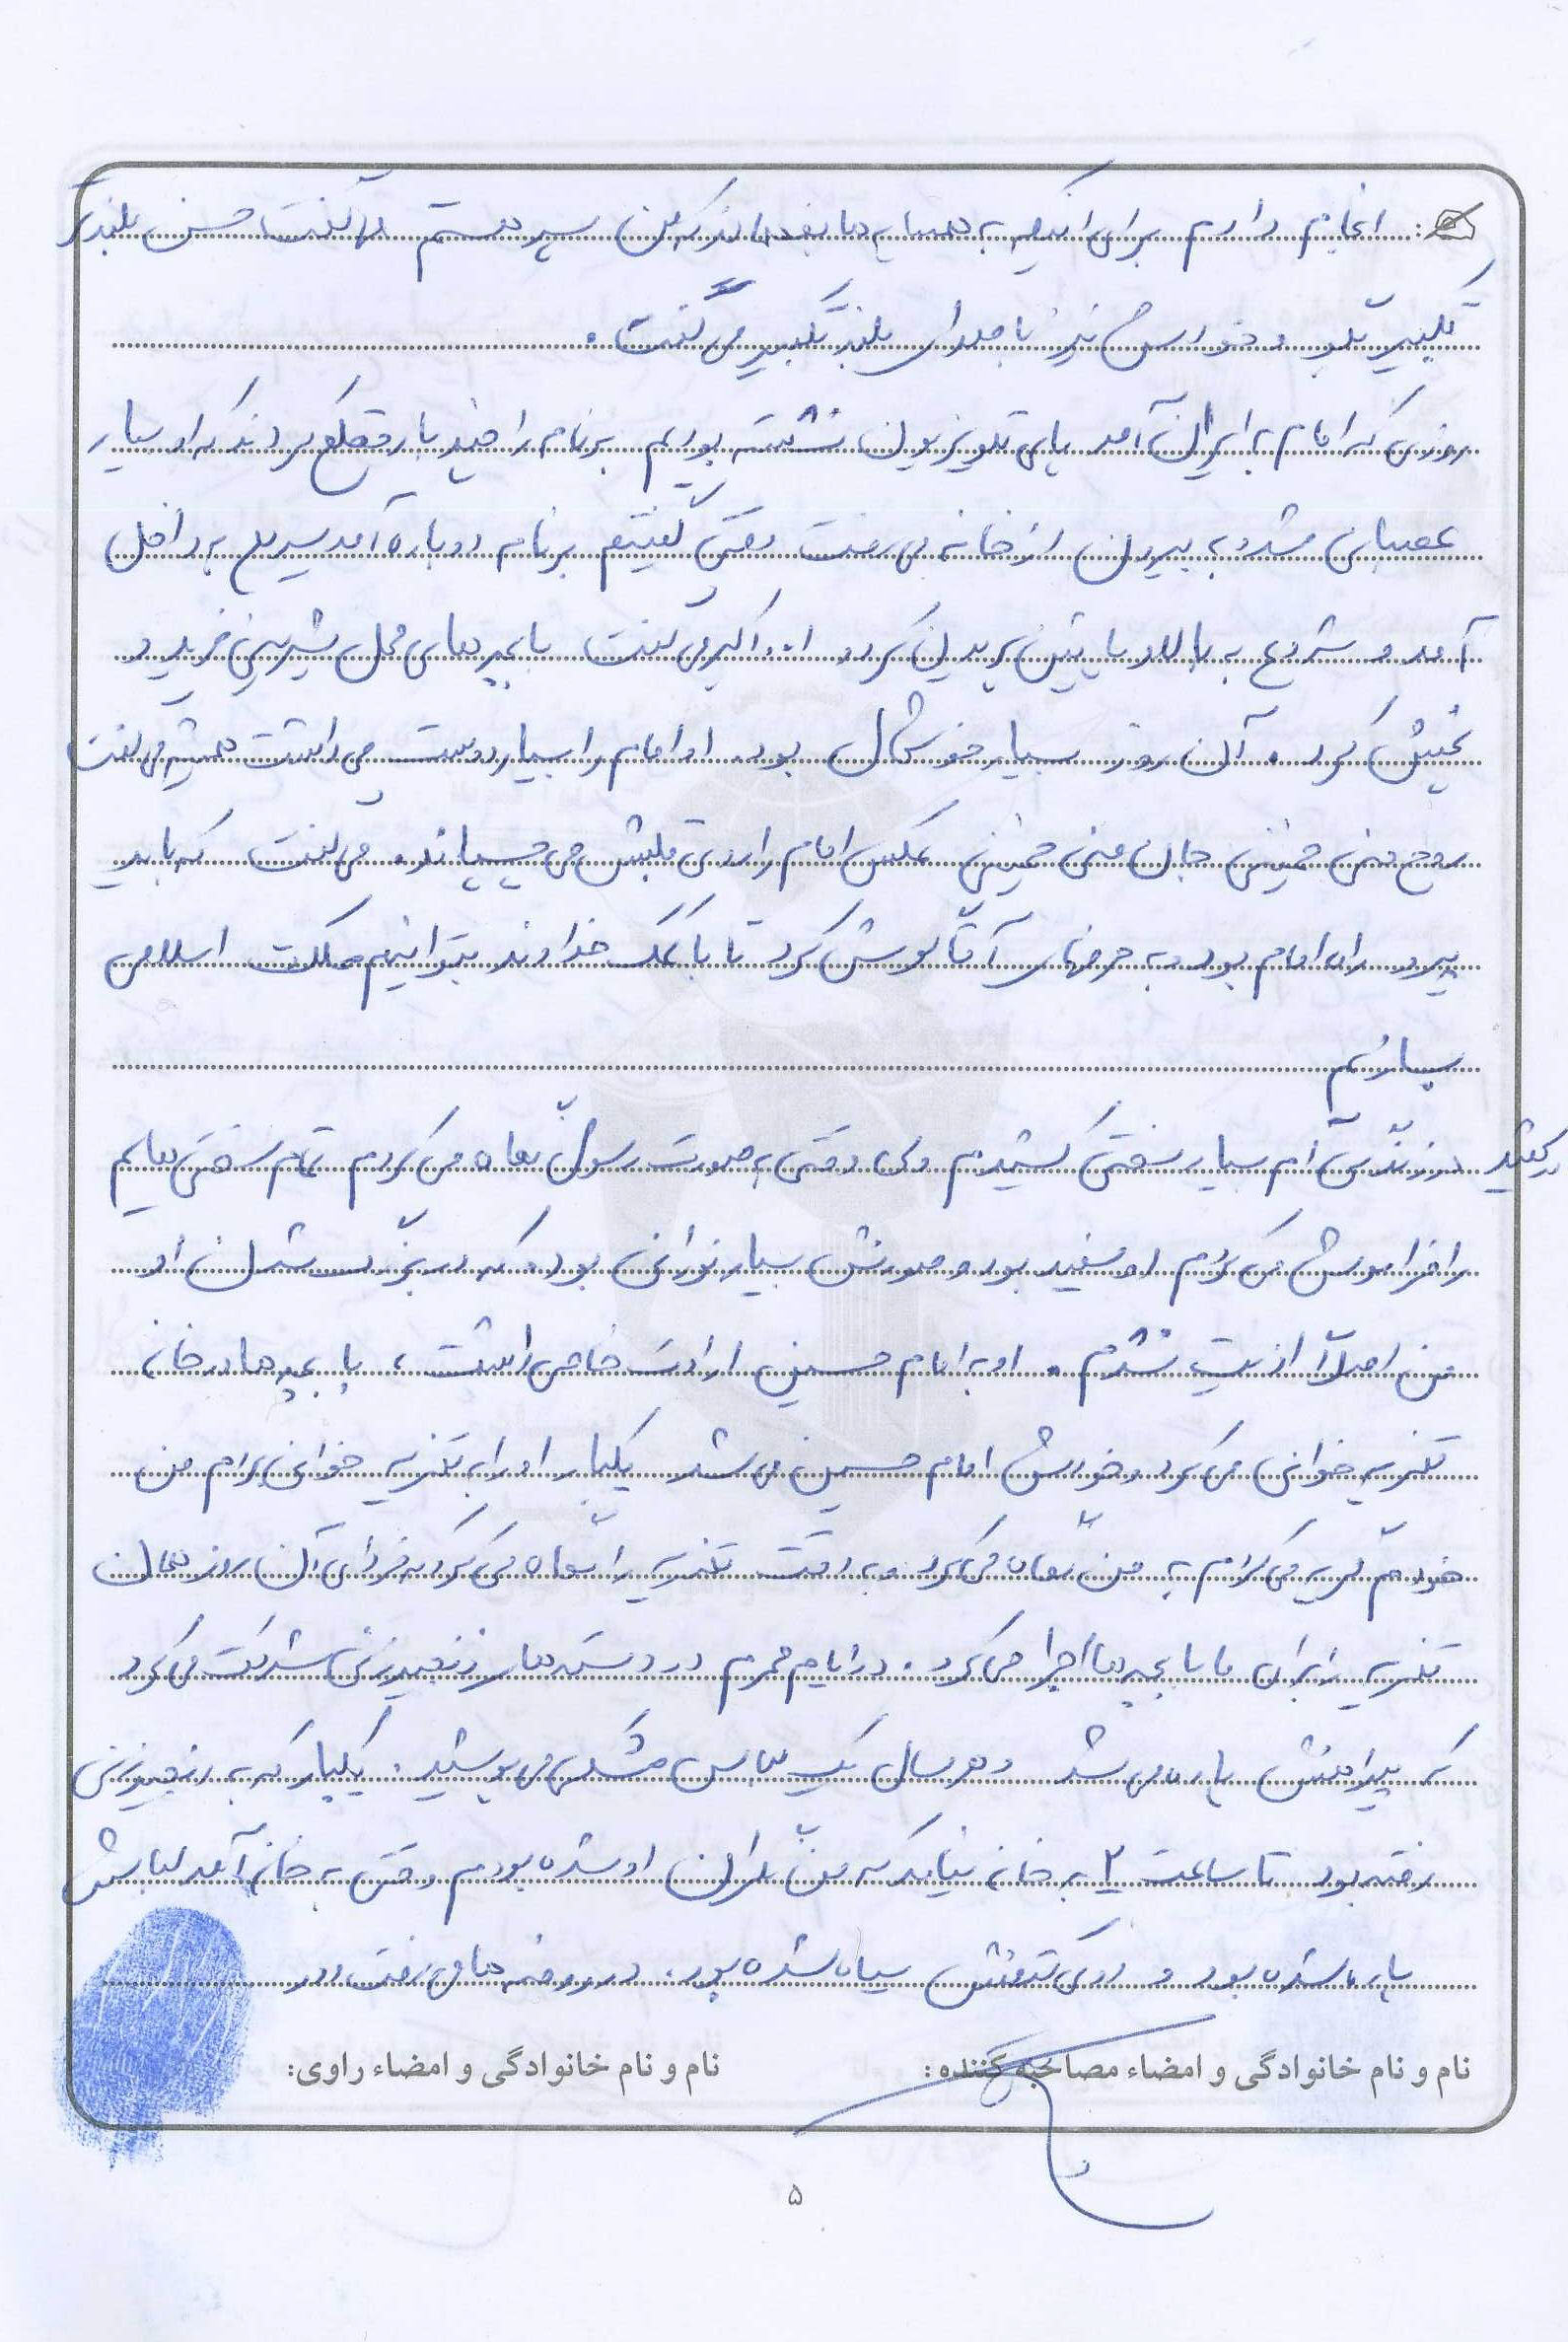 : انجام دارم برای اینکه به همسایه ها بفهماند که من سر هستم می گفت حسن بلندتر
تکبیر بگو و خودش نیز با صدای بلند تکبیر می گفت .
روزی که امام به ایران آمد پای تلویزیون نشسته بودیم برنامه را چند بار قطع کردند که او بسیار
عصبانی شد و به بیرون از خانه می رفت وقتی گفتیم برنامه دوباره آمد سریع به داخل
آمد و شروع به بالا و پایین پریدن کرد و الله اکبر می گفت با بچه های محل شیرینی خرید و
پخش کرد . آن روز بسیار خوشحال بود . او امام را بسیار دوست می داشت همیشه می گفت
روح منی خمینی جان منی خمینی عکس امام را روی قلبش می چسپاند . می گفت که باید
پیرو راه امام بود و به حرفهای آقا گوش کرد تا با کمک خداوند بتوانیم مملکت اسلامی
بسازیم
در زندگی ام بسیار سختی کشیدم ولی وقتی به صورت رسول نگاه می کردم تمام سختی هایم
را فراموش می کردم او سفید بود و صورتش بسیار نورانی بود که در بزرگ شدن او
من اصلاً اذیت نشدم . او به امام حسین ارادت خاصی داشت ، با بچه ها در خانه
تعزیه خوانی می کرد و خودش امام حسین می شد یکبار او را به تعزیه خوانی بردم من
خودم گریه می کردم به من نگاه می کرد و به دقت تعزیه را نگاه می کرد که فردای آن روز همان
تعزیه را برای ما با بچه ها اجرا می کرد . در ایام محرم در دسته های زنجیرزنی شرکت می کرد
که پیراهنش پاره می شد و هر سال یک لباس مشکی می پوشید . یکبار که به زنجیرزنی
رفته بود تا ساعت ۲ به خانه نیامد که من نگران او شده بودم وقتی به خانه آمد لباسش
پاره شده بود و روی کتفش سیاه شده بود . در روضه ها می رفت و در
نام و نام خانوادگی و امضاء مصاحبه کننده: نام و نام خانوادگی و امضاء راوی:
۵